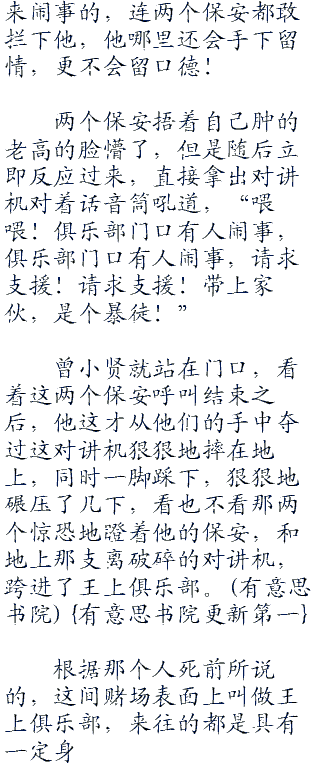 来闹事的，连两个保安都敢
拦下他，他哪里还会手下留
情，更不会留口德！
两个保安捂着自己肿的
老高的脸懵了，但是随后立
即反应过来，直接拿出对讲
机对着话音筒吼道，“喂
喂！俱乐部门口有人闹事，
俱乐部门口有人闹事，请求
支援！请求支援！带上家
伙，是个暴徒！”
曾小贤就站在门口，看
着这两个保安呼叫结束之
后，他这才从他们的手中夺
过这对讲机狠狠地摔在地
上，同时一脚踩下，狠狠地
碾压了几下，看也不看那两
个惊恐地瞪着他的保安，和
地上那支离破碎的对讲机，
跨进了王上俱乐部。(有意思
书院) {有意思书院更新第一}
根据那个人死前所说
的，这间赌场表面上叫做王
上俱乐部，来往的都是具有
一定身